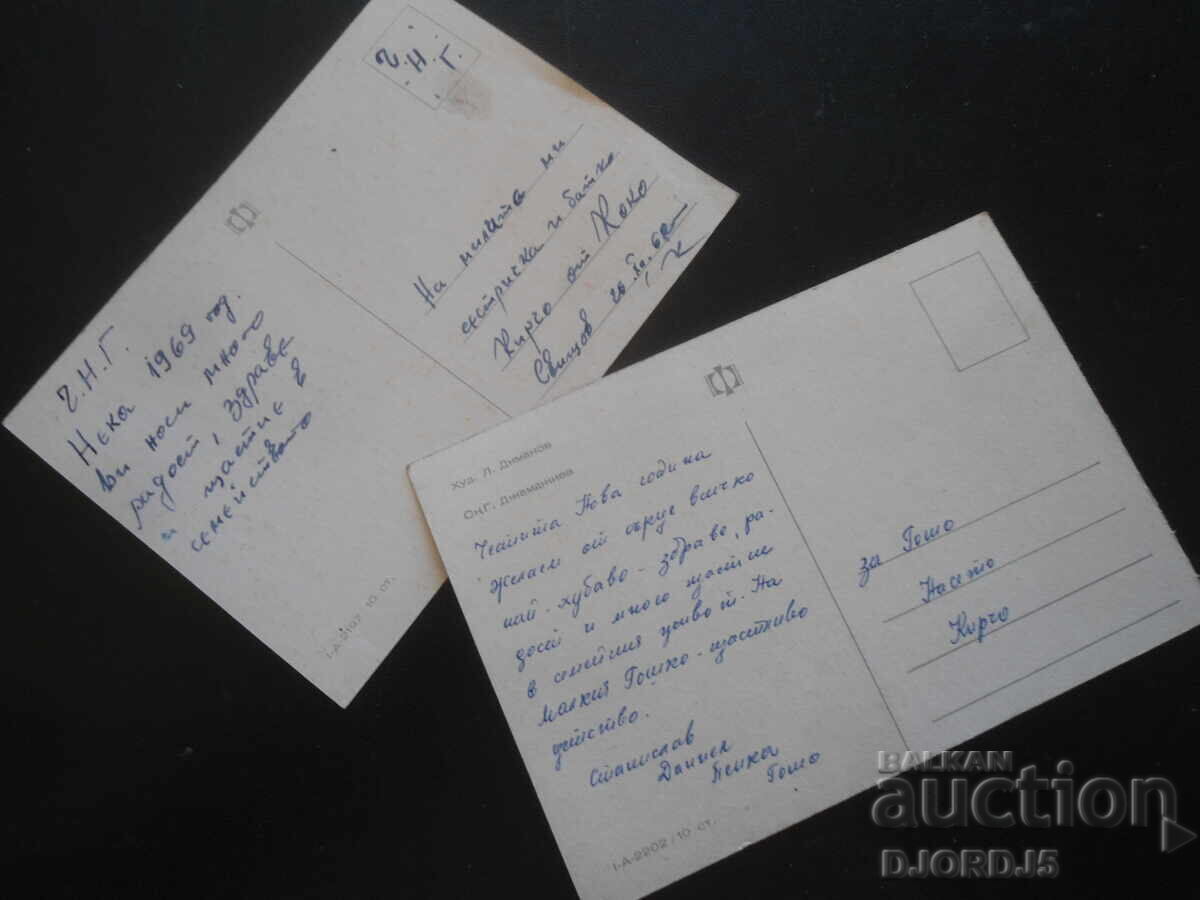 Ч.Н.Г.
Ч.Н.Г.
Нека 1969 год.
ви носи много
радост, здраве
и щастие в
семейството
I-A-2197 10 ст.
На милите ми
сестричка и батко
Кирчо от Коко
Свищов
Худ. Л. Диманов
Сн. Г. Джаманиев
Честита Нова година
Желаем от сърце всичко
най-хубаво - здраве, ра-
дост и много щастие
в семейния живот. На
малкия Гошко - щастливо
детство.
Станислав
Даниел
Пенка
Гошо
I-A-2202 / 10 ст.
за Гошо
Насето
Кирчо
BALKAN
auction
DJORDJ5